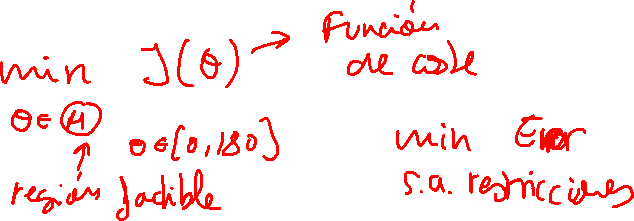 min J(θ) → Función de coste
θ ∈ Ⓗ
θ ∈ [0, 180]
región factible
min Error
s.a. restricciones